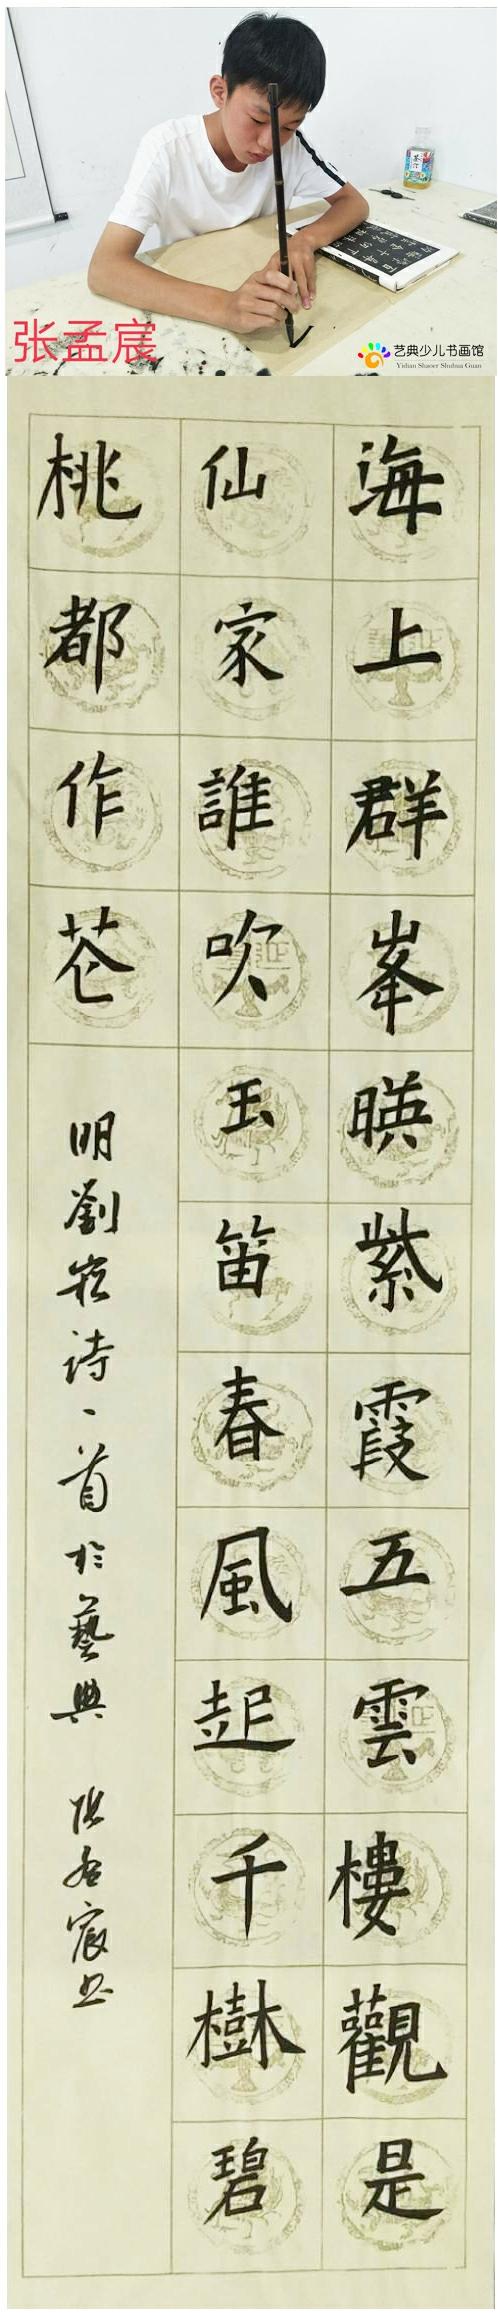 张孟宸
艺典少儿书画馆
Yidian Shaoer Shuhua Guan
海上群峯暎紫霞五雲樓觀是
仙家誰吹玉笛春風起千樹碧
桃都作花
明劉崧詩一首於藝典 張孟宸書